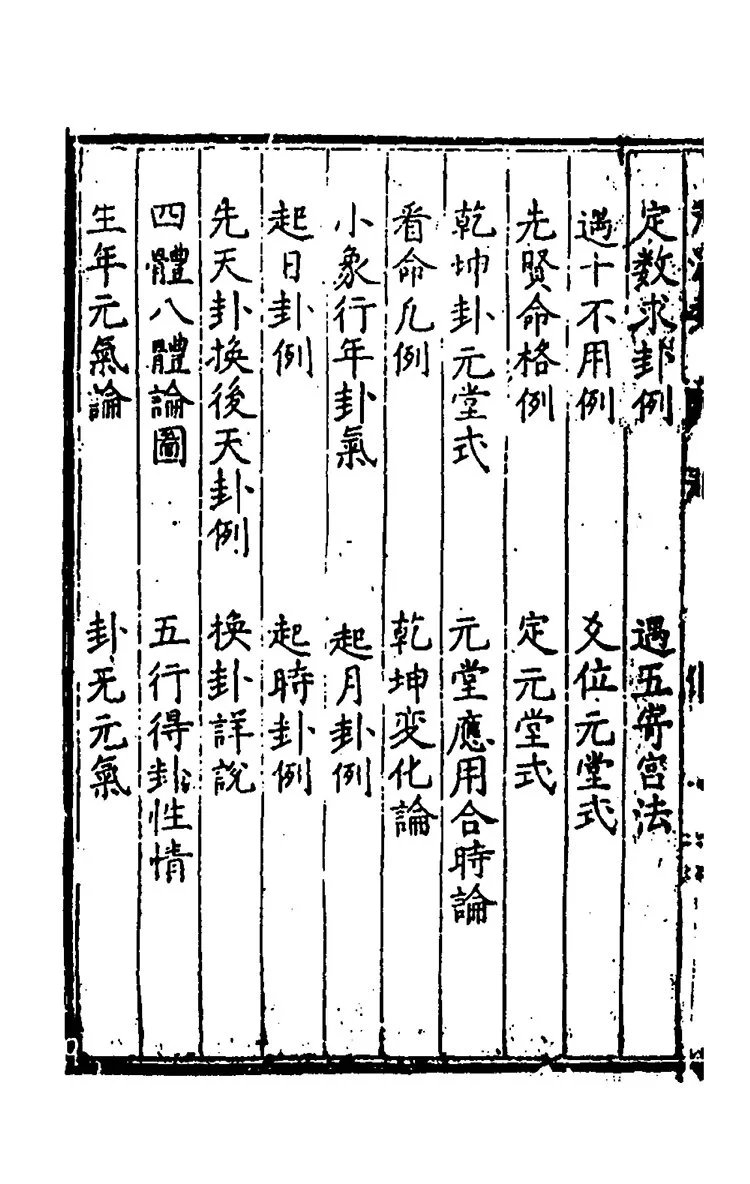 定数求卦例　遇五寄宮法
遇十不用例　爻位元堂式
先賢命格例　定元堂式
乾坤卦元堂式　元堂應用合時論
看命凡例　乾坤変化論
小象行年卦氣　起月卦例
起日卦例　起時卦例
先天卦換後天卦例　換卦詳說
四體八體論圖　五行得卦性情
生年元氣論　卦旡元氣